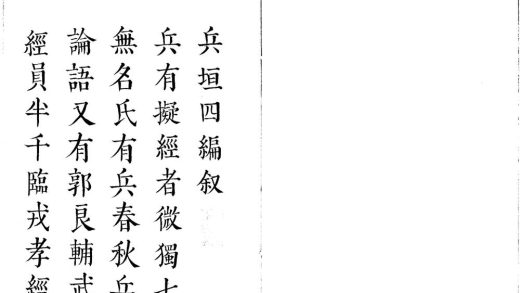 兵垣四編叙
兵有擬經者微獨七
無名氏有兵春秋兵
論語又有郭良輔武
經員半千臨戎孝經